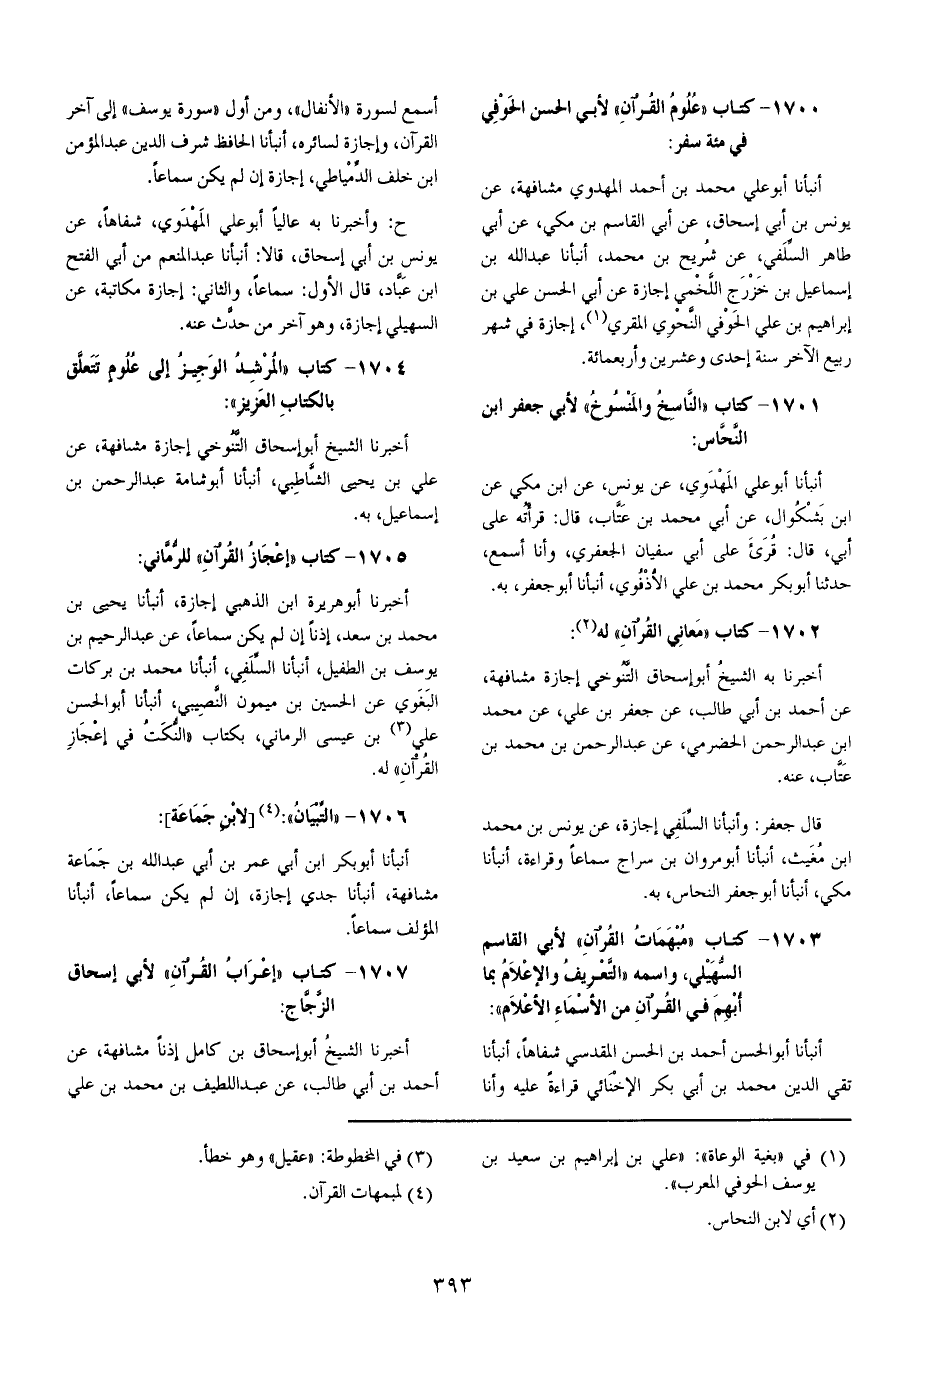 ١٧٠٠- كتاب «عُلُومُ القُرآنِ» لأبي الحسن الحَوْفِي
في مئة سفر:
أنبأنا أبوعلي محمد بن أحمد المهدوي مشافهة، عن
يونس بن أبي إسحاق، عن أبي القاسم بن مكي، عن أبي
طاهر السِّلَفي، عن شُريح بن محمد، أنبأنا عبدالله بن
إسماعيل بن خَزْرَج اللَّخْمي إجازة عن أبي الحسن علي بن
إبراهيم بن علي الحَوْفي النَّحْوي المقري(١)، إجازة في شهر
ربيع الآخر سنة إحدى وعشرين وأربعمائة.
١٧٠١- كتاب «النَّاسخُ والمَنْسُوخُ» لأبي جعفر ابن
النَّحَّاس:
أنبأنا أبوعلي المَهْدَوِي، عن يونس، عن ابن مكي عن
ابن بَشْكُوال، عن أبي محمد بن عَتَّاب، قال: قرأتُه على
أبي، قال: قُرَئَ على أبي سفيان الجعفري، وأنا أسمع،
حدثنا أبوبكر محمد بن علي الأُدْفُوي، أنبأنا أبوجعفر، به.
١٧٠٢- كتاب «مَعاني القُرآنِ» له(٢):
أخبرنا به الشيخُ أبوإسحاق التَّنُوخي إجازة مشافهة،
عن أحمد بن أبي طالب، عن جعفر بن علي، عن محمد
ابن عبدالرحمن الحضرمي، عن عبدالرحمن بن محمد بن
عتَّاب، عنه.
قال جعفر: وأنبأنا السِّلَفي إجازة، عن يونس بن محمد
ابن مُغَيث، أنبأنا أبومروان بن سراج سماعاً وقراءة، أنبأنا
مكي، أنبأنا أبوجعفر النحاس، به.
١٧٠٣- كتاب «مُبْهَمَاتُ القُرآنِ» لأبي القاسم
السُّهَيْلي، واسمه «التَّعْريفُ والإعْلاَمُ بما
أُبْهِمَ في القُرآنِ من الأسْمَاءِ الأعْلاَمِ»:
أنبأنا أبوالحسن أحمد بن الحسن المقدسي شفاهاً، أنبأنا
تقي الدين محمد بن أبي بكر الإخْنَائي قراءةً عليه وأنا
أسمع لسورة «الأنفال»، ومن أول «سورة يوسف» إلى آخر
القرآن، وإجازة لسائره، أنبأنا الحافظ شرف الدين عبدالمؤمن
ابن خلف الدِّمْياطي، إجازة إن لم يكن سماعاً.
ح: وأخبرنا به عالياً أبوعلي المَهْدَوي، شفاهاً، عن
يونس بن أبي إسحاق، قالا: أنبأنا عبدالمنعم من أبي الفتح
ابن عَبَّاد، قال الأول: سماعاً، والثاني: إجازة مكاتبة، عن
السهيلي إجازة، وهو آخر من حدَّث عنه.
١٧٠٤- كتاب «المُرْشِدُ الوَجيزُ إلى عُلُومٍ تَتَعلَّق
بالكتابِ العَزيزِ»:
أخبرنا الشيخ أبوإسحاق التَّنُوخي إجازة مشافهة، عن
علي بن يحيى الشَّاطِبي، أنبأنا أبوشامة عبدالرحمن بن
إسماعيل، به.
١٧٠٥- كتاب «إعْجَازُ القُرآنِ» للرُّمَّاني:
أخبرنا أبوهريرة ابن الذهبي إجازة، أنبأنا يحيى بن
محمد بن سعد، إذناً إن لم يكن سماعاً، عن عبدالرحيم بن
يوسف بن الطفيل، أنبأنا السِّلَفي، أنبأنا محمد بن بركات
البَغَوي عن الحسين بن ميمون النَّصِيبي، أنبأنا أبوالحسن
علي(٣) بن عيسى الرماني، بكتاب «النُّكَتُ في إعْجَازِ
القُرْآنِ» له.
١٧٠٦- «التِّبْيَانُ»:(٤) [لابْنِ جَمَاعَة]:
أنبأنا أبوبكر ابن أبي عمر بن أبي عبدالله بن جَمَاعة
مشافهة، أنبأنا جدي إجازة، إن لم يكن سماعاً، أنبأنا
المؤلف سماعاً.
١٧٠٧- كتاب «إعْرَابُ القُرآنِ» لأبي إسحاق
الزَّجَّاج:
أخبرنا الشيخُ أبوإسحاق بن كامل إذناً مشافهة، عن
أحمد بن أبي طالب، عن عبداللطيف بن محمد بن علي
(١) في «بغية الوعاة»: «علي بن إبراهيم بن سعيد بن
يوسف الحوفي المعرب».
(٢) أي لابن النحاس.
(٣) في المخطوطة: «عقيل» وهو خطأ.
(٤) لمبمهات القرآن.
٣٩٣